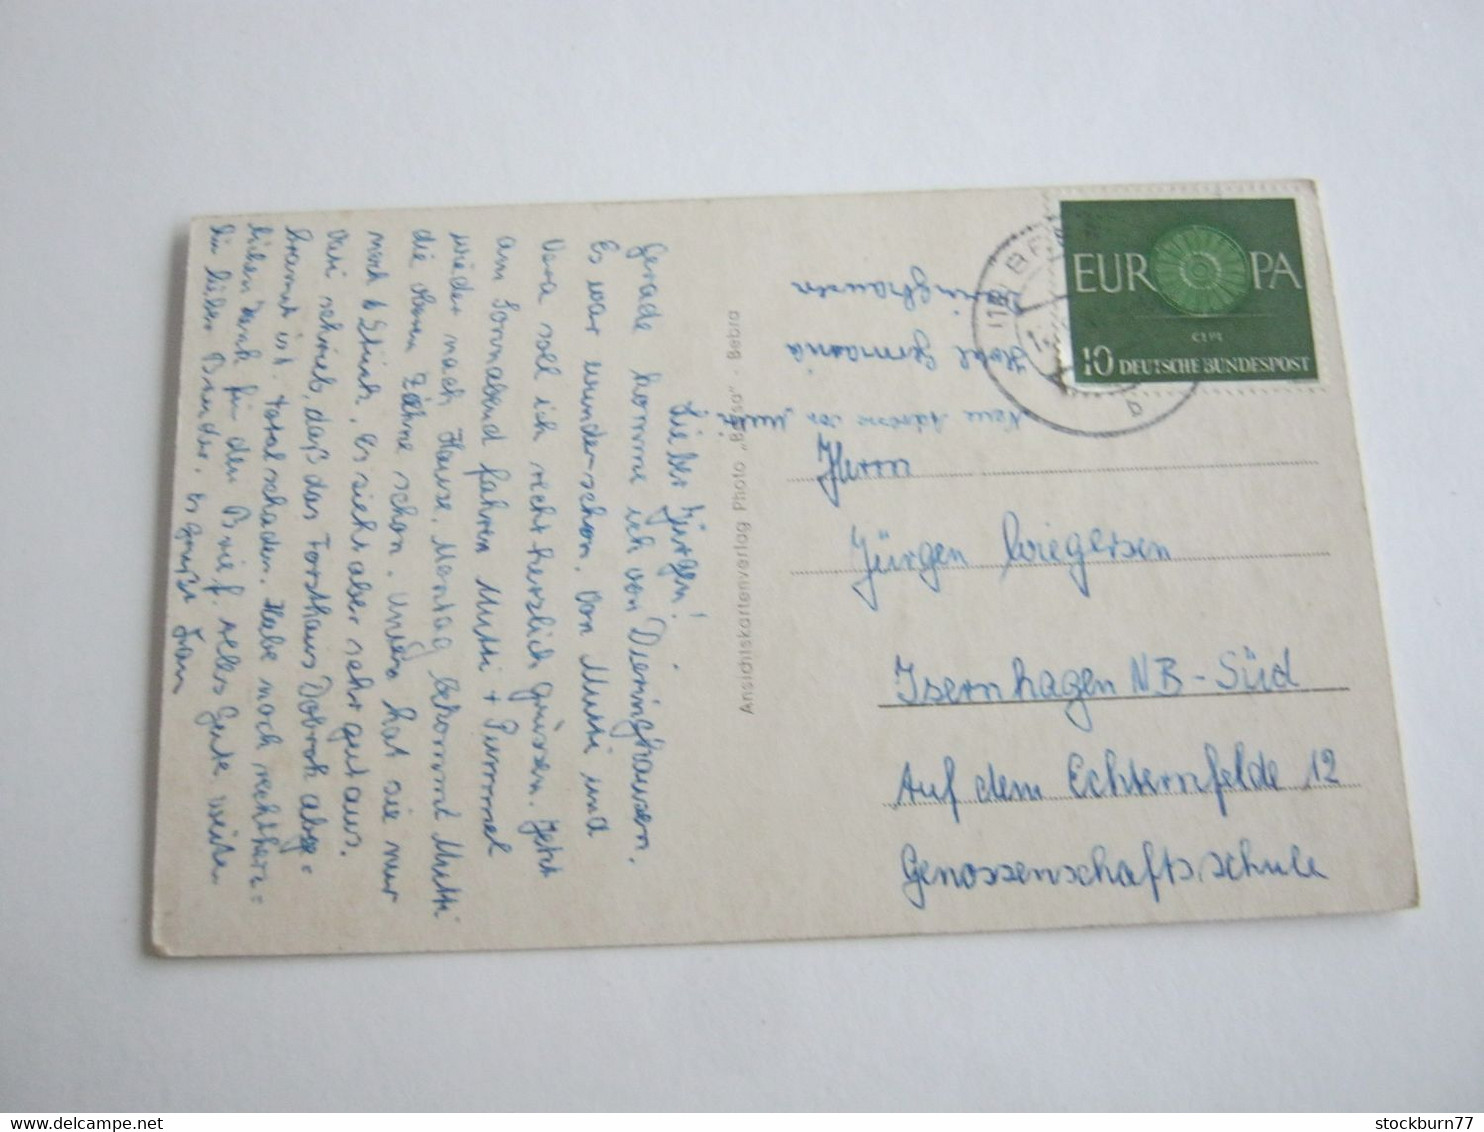 Lieber Jürgen!
Gerade komme ich von Dieringhausen.
Es war wunder-schön. Von Mutti und
Vera soll ich recht herzlich grüssen. Jetzt
am Sonnabend fahren Mutti + Pummel
wieder nach Hause. Montag bekommt Mutti
die oberen Zähne schon. Unters hat sie nur
noch 6 Stück. Es sieht aber sehr gut aus.
schrieb, daß das Forsthaus Dobrock abge=
brannt ist. Totalschaden. Habe noch recht herz=
lichen Dank für den Brief. Alles Gute weiter
Du lieber Bruder, es grüßt
Ansichtskartenverlag Photo „Bersa" - Bebra
Neue Adresse von Mutti
Hotel Germania
Dieringhausen
(16) BEBRA
b
EUROPA
CEPT
10 DEUTSCHE BUNDESPOST
Herrn
Jürgen Wiegersen
Isernhagen NB-Süd
Auf dem Echternfelde 12
Genossenschaftsschule
stockburn77